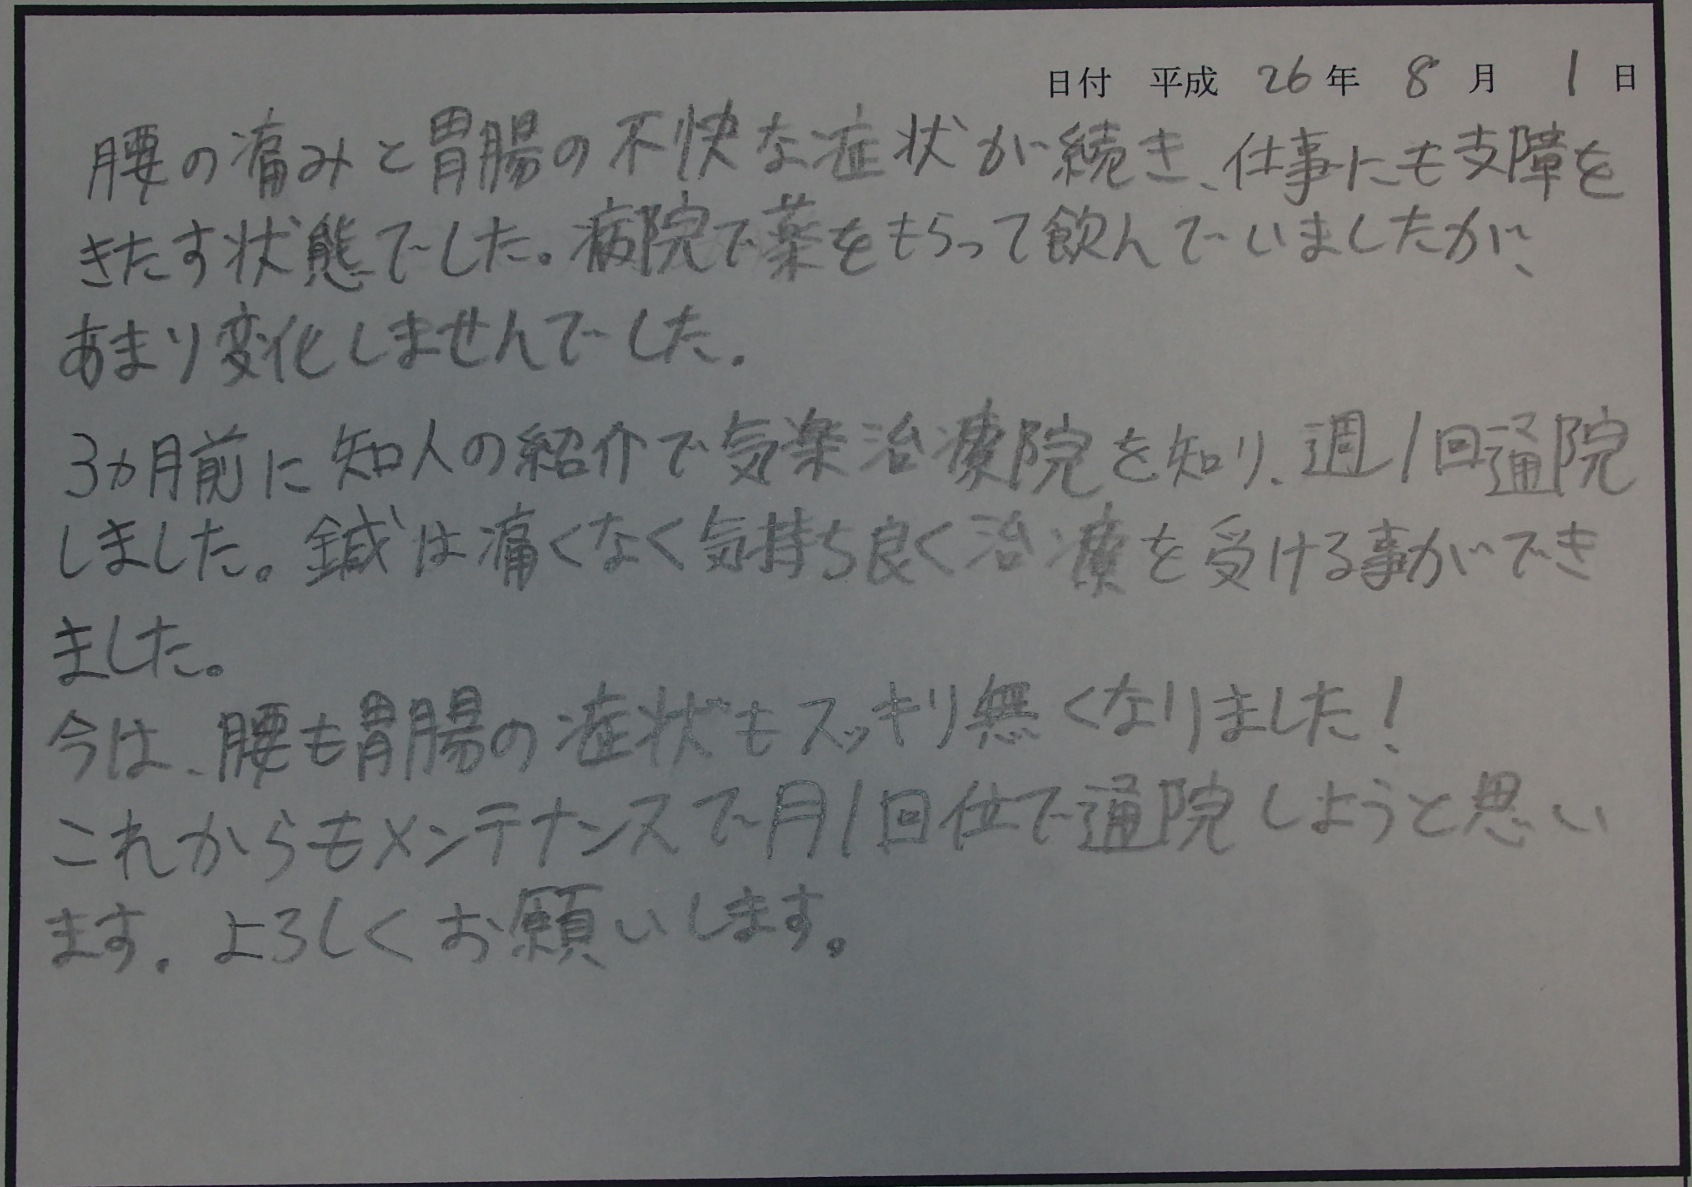 日付 平成 26 年 8 月 1 日
腰の痛みと胃腸の不快な症状が続き、仕事にも支障を
きたす状態でした。病院で薬をもらって飲んでいましたが、
あまり変化しませんでした。
3ヵ月前に知人の紹介で気楽治療院を知り、週1回通院
しました。鍼は痛くなく気持ち良く治療を受ける事ができ
ました。
今は、腰も胃腸の症状もスッキリ無くなりました!
これからもメンテナンスで月1回位で通院しようと思い
ます。よろしくお願いします。